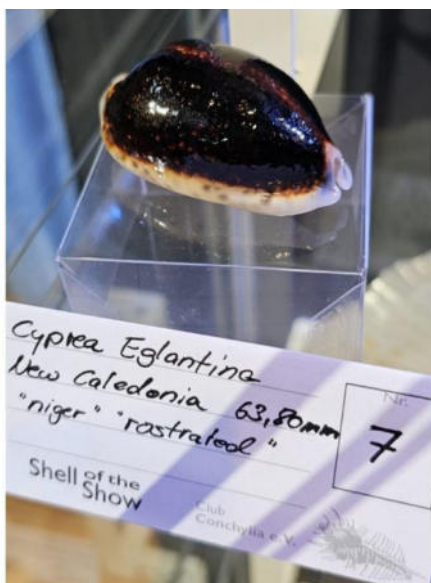 Cyprea Eglantina
New Caledonia 63,80mm
"niger" "rostrated"
Nr.
7
Shell of the
Show
Club
Conchylia e.V.